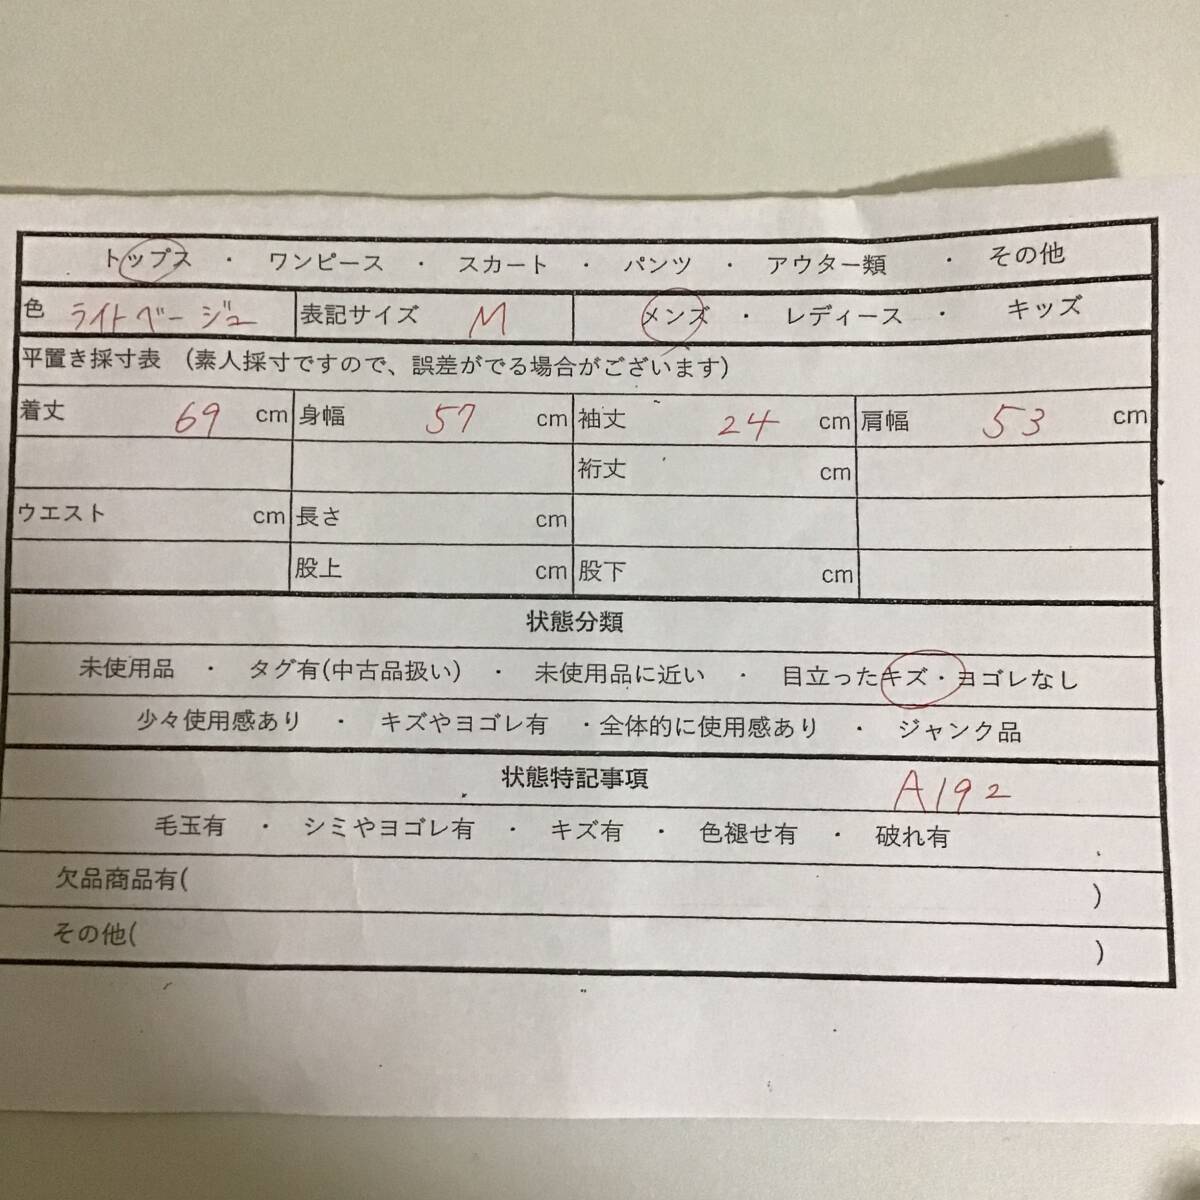 トップス ・ ワンピース ・ スカート ・ パンツ ・ アウター類 ・ その他
色 ライトベージュ 表記サイズ M メンズ ・ レディース ・ キッズ
平置き採寸表 (素人採寸ですので、誤差がでる場合がございます)
着丈 69 cm 身幅 57 cm 袖丈 24 cm 肩幅 53 cm
裄丈 cm
ウエスト cm 長さ cm
股上 cm 股下 cm
状態分類
未使用品 ・ タグ有(中古品扱い) ・ 未使用品に近い ・ 目立ったキズ・ヨゴレなし
少々使用感あり ・ キズやヨゴレ有 ・全体的に使用感あり ・ ジャンク品
状態特記事項 A192
毛玉有 ・ シミやヨゴレ有 ・ キズ有 ・ 色褪せ有 ・ 破れ有
欠品商品有( )
その他( )